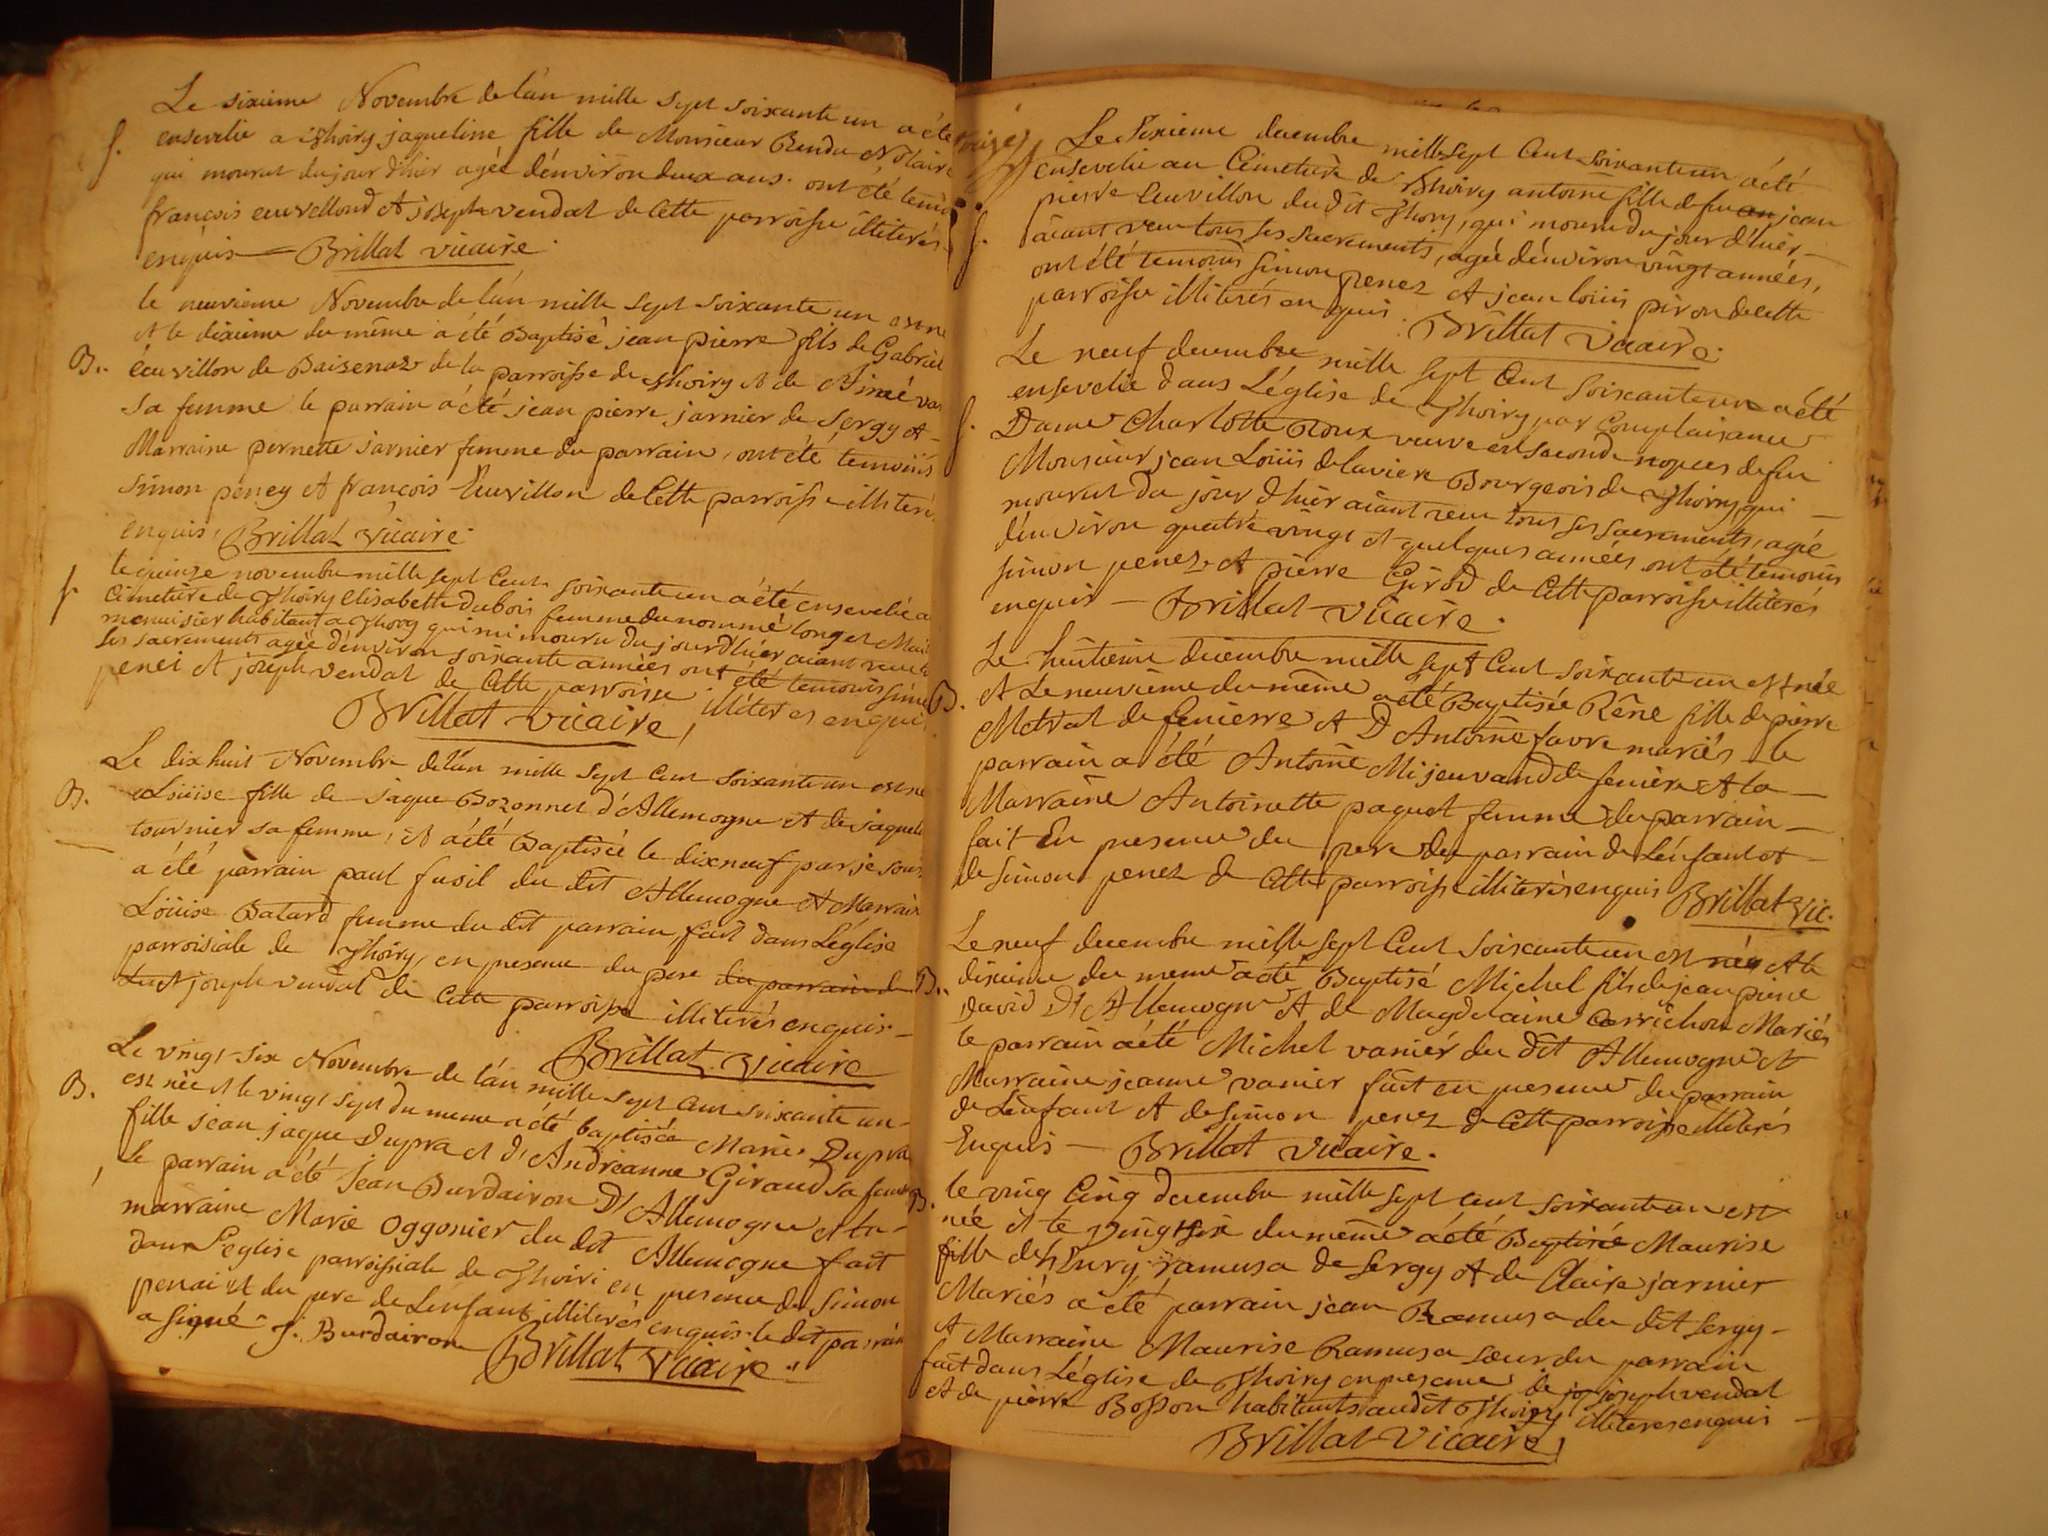 Le sixieme Novembre de l'an mille sept soixante un a été
S. ensevelie a Thoiry jaqueline fille de Monsieur Rendu Notaire
qui mourut du jour d'hier agée d'environ deux ans. ont été temoi
françois cuvellond et joseph vendat de cette parroisse illiterés
enquis — Brillat vicaire.
le neuvieme Novembre de l'an mille sept soixante un est né
et le dixieme du même a été Baptisé jean pierre fils de Gabriel
B.. écuvillon de Baizenaz de la parroisse de Thoiry et de Aimé
sa femme le parrain a été jean pierre jarnier de Sergy et
Marraine pernette jarnier femme du parrain, ont été temoins
Simon peney et françois Ecuvillon de Cette parroisse illiteré
enquis, Brillat Vicaire.
le quinze novembre mille sept Cent soixante un a été ensevelie a
f. Cimetiere de Thoiry elisabette dubois femme du nommé longet
menuisier habitant a Thoiry qui mi mouru du jour d'hier aiant receu
les sacrements agée d'environ soixante années ont été temoins simo
penei et joseph vendat de Cette parroisse. illiteres enqui
Brillat vicaire,
Le dix huit Novembre de l'an mille sept Cent soixante un est né
B. Loüise fille de jaque Bozonnet d'Allemogne et de jaquel
tournier sa femme, et a été Baptisée le dixneuf par je sous
a été parrain paul fusil du dit Allemogne et Marrain
Loüise Batard femme du dit parrain, fait dans l'église
parroisiale de Thoiry, en presence du pere du parrain de
et joseph vendat de Cette parroisse illiterés enquis —
Brillat vicaire
Le vingt-six Novembre de l'an mille sept cent soixante un
B. est née et le vingt sept du meme a été baptisée Marie Dupra
fille jean jaque Dupra et d'Andréanne Giraud sa femme
Le parrain a été jean Burdairon d'Allemogne et la
marraine Marie Oggonier du dit Allemogne fait
dans l'eglise parroissiale de Thoiri en presence de Simon
penai et du pere de l'enfant illiterés enquis. le dit parrain
a signé — j. Burdairon Brillat vicaire.
Le Sixieme decembre mille sept Cent soixante un a été
ensevelie au Cimetiere de Thoiry antoine fille de feu jean
pierre Ecuvillon du dit Thoiry, qui mouru du jour d'hier —
f. aiant receu tous ses sacrements, agée d'environ vingt années,
ont été temoins Simon penez et jean loüis piron de cette
parroisse illiterés enquis. Brillat vicaire.
Le neuf decembre mille sept Cent soixante un a été
ensevelie dans L'église de Thoiry par Complaisance
f. Dame Charlotte Roux veuve en seconde nopces de feu
Monsieur jean Loüis delaviere Bourgeois de Thoiry, qui —
mourut du jour d'hier aiant receu tous ses sacrements, agée
d'environ quatre vingt et quelques années, ont été temoins
simon penez et pierre Girod de Cette parroisse illiterés
enquis — Brillat vicaire.
Le huitieme decembre mille sept Cent soixante un est née
B. et Le neuvieme du même a été Baptisée Rêne fille de pierre
Metrat de fenierre et D Antoine favre mariés le
parrain a été Antoine Mijeuvand de feniere et la —
Marraine Antoinette paquet femme du parrain —
fait En presence du pere du parrain de L'enfant et —
de Simon penez de Cette parroisse illiterés enquis Brillat Vic.
Le neuf decembre mille sept Cent soixante un est né et le
B.. dixieme du meme a été Baptisé Michel fils de jean pierre
David D'Allemogne et de Magdelaine Mariés
le parrain a été Michel vanier du dit Allemogne et
Marraine jeanne vanier fait en presence du parrain
de L'enfant et de Simon penez de Cette parroisse illiterés
Enquis — Brillat vicaire.
B. le ving Cinq decembre mille sept cent soixante un est
née et le vingt six du même a été Baptisée Maurise
fille de henry ramusa de Sergy et de Claire jarnier
Mariés a été parrain jean Ramusa du dit Sergy —
et Marraine Maurise Ramusa soeur du parrain
fait dans L'église de Thoiry en presence de jo joseph vendat
et de pierre Bosson habitants audit Thoiry illiteres enquis —
Brillat vicaire,